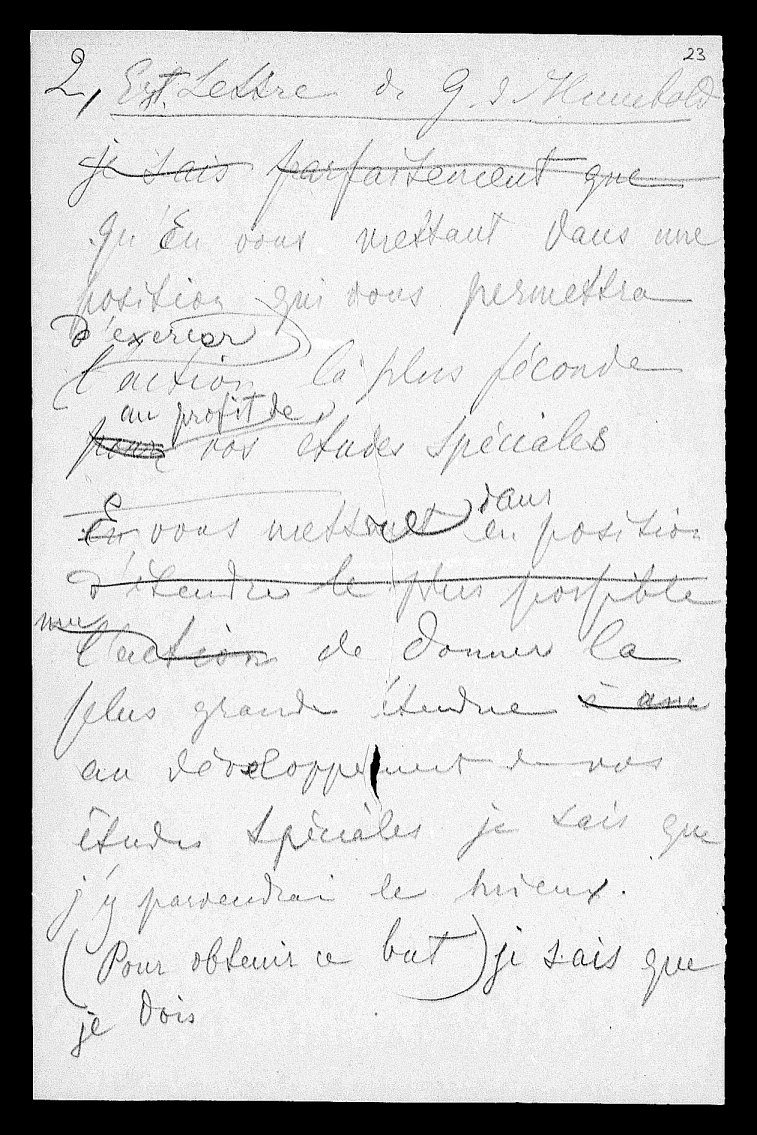 23
2, Ext. Lettre de G. d. Humbold
je sais parfaitement que
qu'En vous mettant dans une
position qui vous permettra
d'exercer
l'action la plus féconde
au profit de
pour vos études spéciales
dans
En vous mettant en position
d'étendre le plus possible
une
l'action de donner la
plus grande étendue à une
au développement de vos
études spéciales je sais que
j'y parviendrai le mieux.
(Pour obtenir ce but) je sais que
je dois